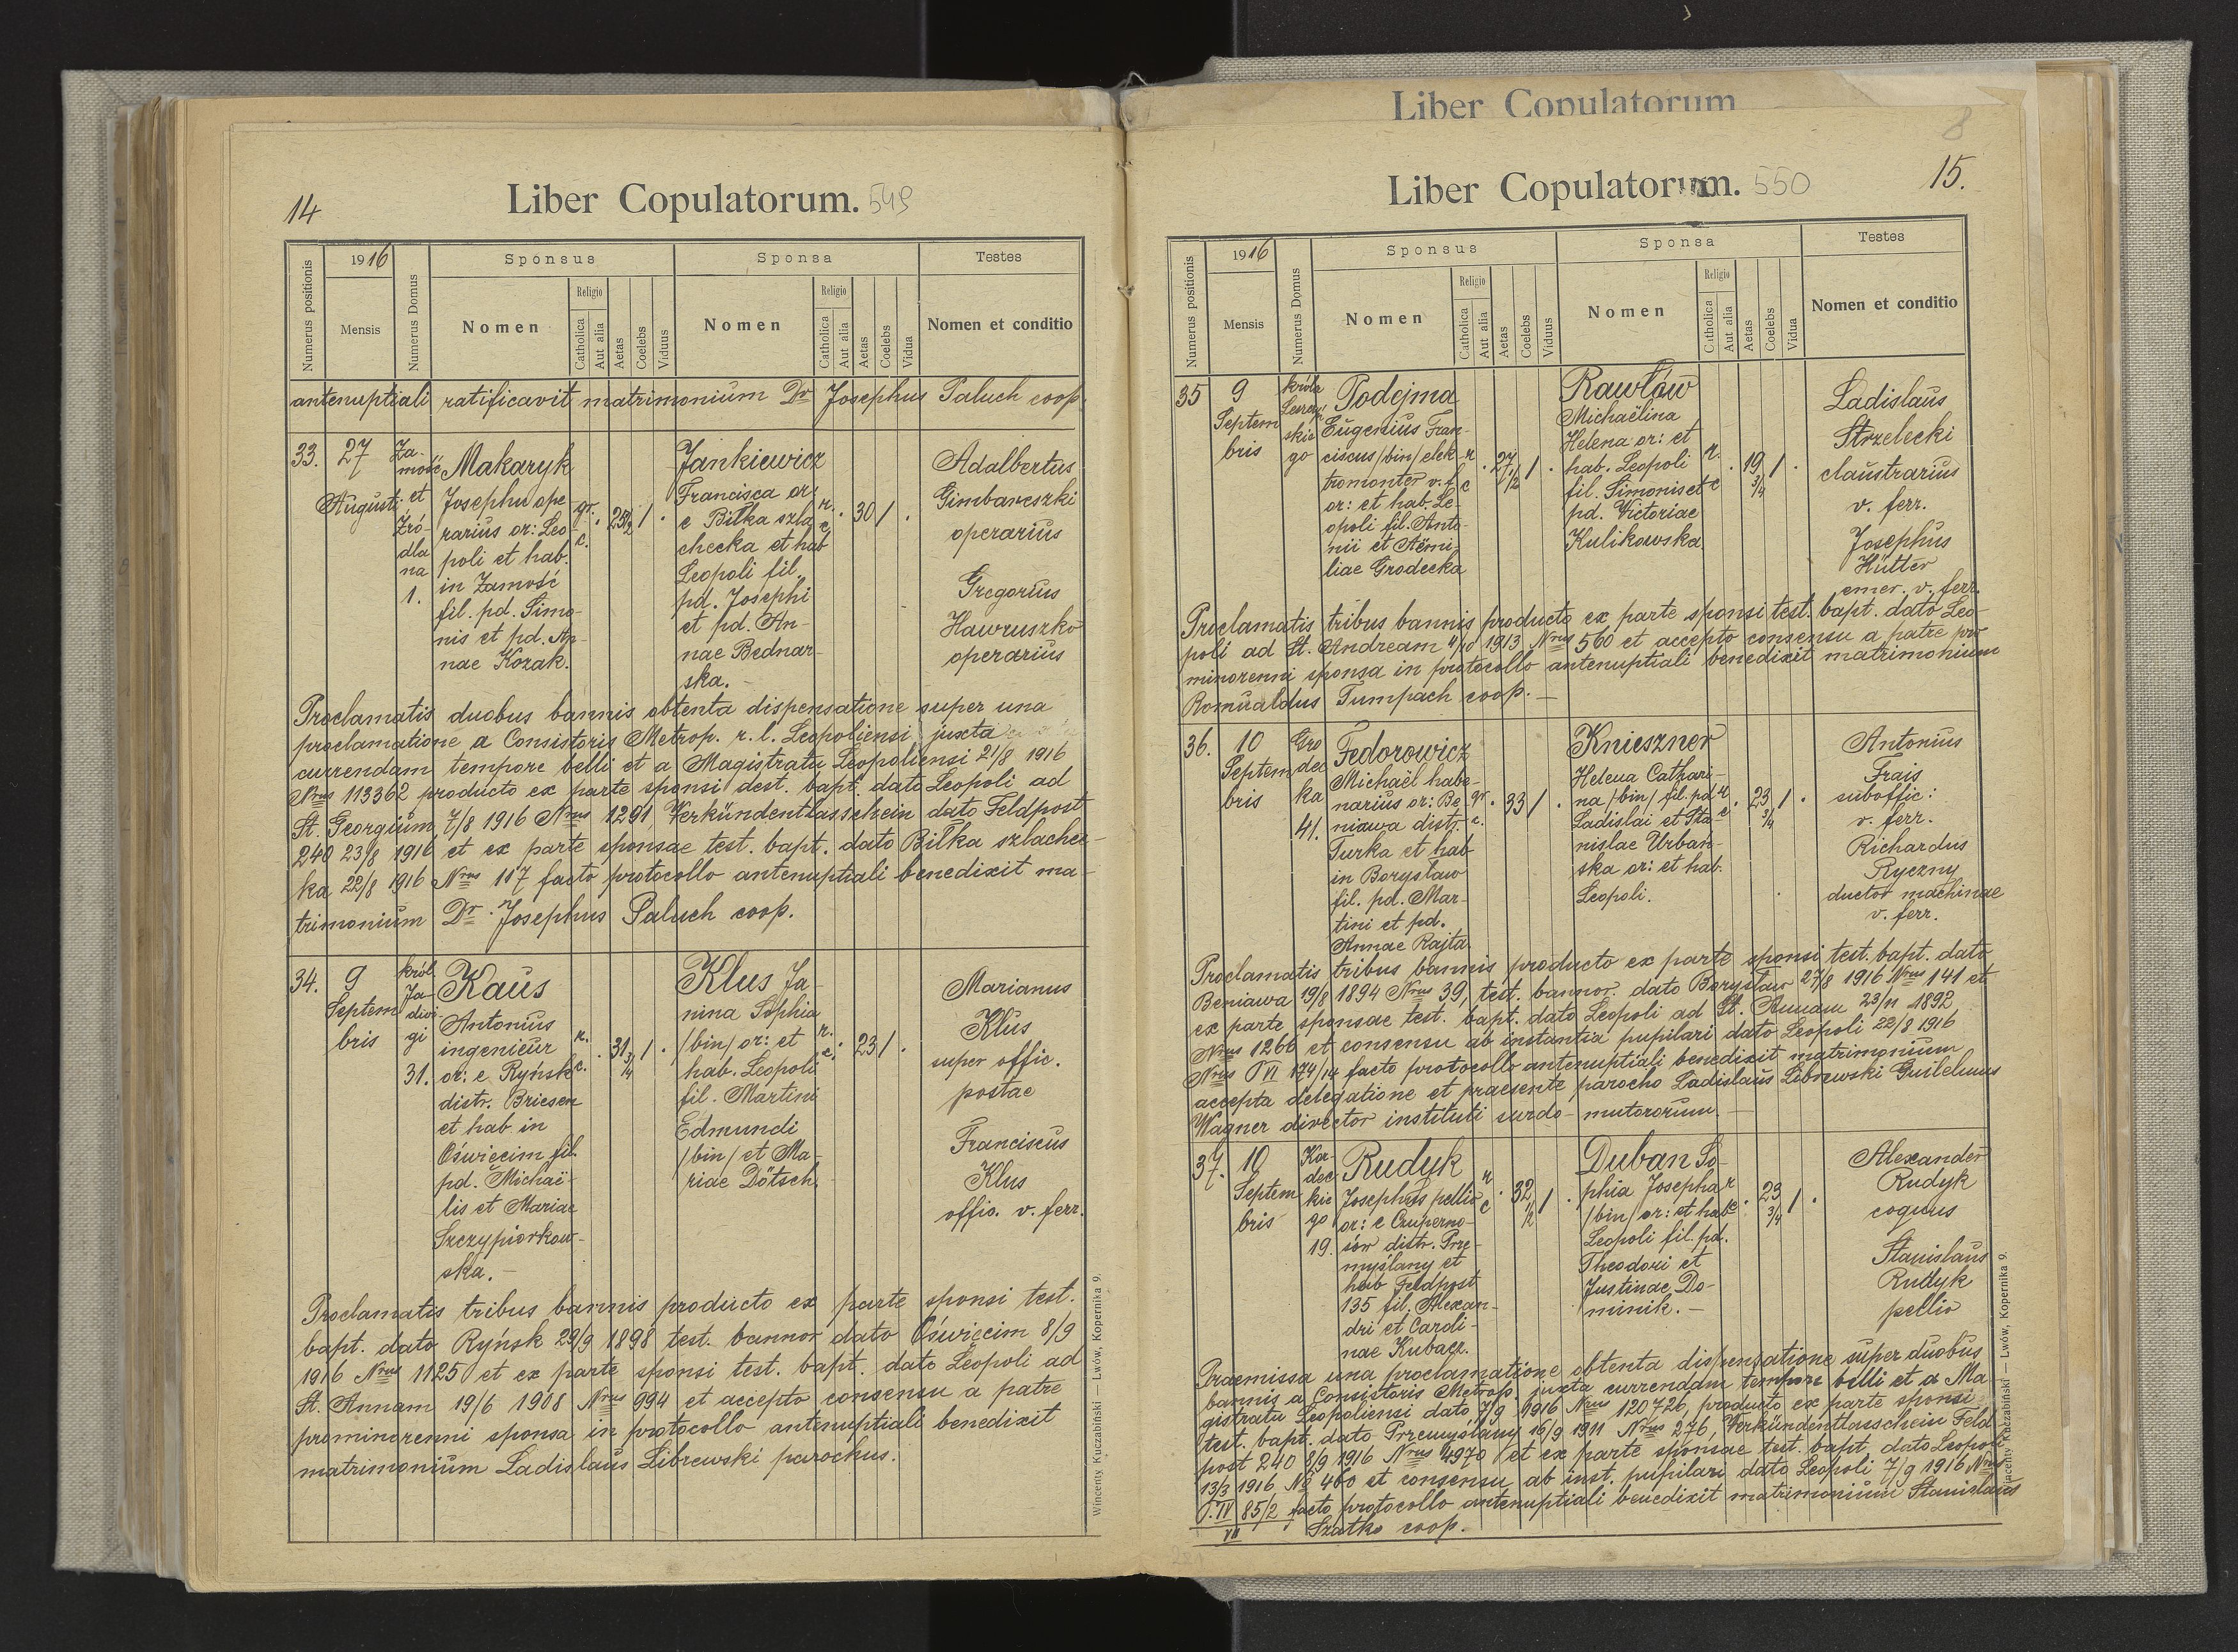 14
Liber Copulatorum. 549
Numerus positionis
1916
Mensis
Numerus Domus
Sponsus
Nomen
Religio
Catholica
Aut alia
Aetas
Coelebs
Viduus
Sponsa
Nomen
Religio
Catholica
Aut alia
Aetas
Coelebs
Vidua
Testes
Nomen et conditio
antenuptiali ratificavit matrimonium Dr Josephus Paluch coop.
33.
27
Augusti
Za-
mość
et
Źró-
dla
na
1.
Makaryk
Josephu ope
rarius or: Leo
poli et hab.
in Zamość
fil. pd. Simo-
nis et pd. An-
nae Kozak.
gr.
c.
25 1/2
1
Jankiewicz
Francisca or:
e Bilka szla
checka et hab
Leopoli fil.
pd. Josephi
et pd. An-
nae Bednar-
ska.
r.
c.
30
1
Adalbertus
Gimbarszki
operarius
Gregorius
Hawruszko
operarius
Proclamatis duobus bannis obtenta dispensatione super una
proclamatione a Consistoris Metrop. r. l. Leopoliensi juxta
currendam tempore belli et a Magistratu Leopoliensi 21/8 1916
Nrus 113362 producto ex parte sponsi dest. bapt. dato Leopoli ad
St. Georgium 7/8 1916 Nrus 1291, Verkündentlasschein dato Feldpost
240 23/8 1916 et ex parte sponsae test. bapt. dato Bilka szlachec-
ka 22/8 1916 Nrus 117 facto protocollo antenuptiali benedixit ma-
trimonium Dr Josephus Paluch coop.
34.
9
Septem
bris
król.
Ja-
dwi-
gi
31.
Kaus
Antonius
ingenieur
or: e Ryńsk
distr. Briesen
et hab. in
Oświęcim fil.
pd. Michae-
lis et Mariae
Szczypiorkow-
ska.
r.
c.
31 3/4
1
Klus Ja-
nina Sophia
/bin/ or: et
hab. Leopoli
fil. Martini
Edmundi
/bin/ et Ma-
riae Dötsch.
r.
c.
23
1
Marianus
Klus
super offic.
postae
Franciscus
Klus
offic. v. ferr.
Proclamatis tribus bannis producto ex parte sponsi test.
bapt. dato Ryńsk 29/9 1898 test. bannor dato Oświęcim 8/9
1916 Nrus 1125 et ex parte sponsi test. bapt. dato Leopoli ad
St. Annam 19/6 1908 Nrus 994 et accepto consensu a patre
prominorenni sponsa in protocollo antenuptiali benedixit
matrimonium Ladislaus Librewski parochus.
Wincenty Kuczabiński — Lwów, Kopernika 9.
Liber Copulatorum
8
15.
Liber Copulatorum. 550
Numerus positionis
1916
Mensis
Numerus Domus
Sponsus
Nomen
Religio
Catholica
Aut alia
Aetas
Coelebs
Viduus
Sponsa
Nomen
Religio
Catholica
Aut alia
Aetas
Coelebs
Vidua
Testes
Nomen et conditio
35
9
Septem
bris
króla
Leszczyń
skie
go
Podejma
Eugenius Fran-
ciscus /bin/ elek-
tromonter v. f.
or: et hab. Le-
opoli fil. Anto-
nii et Aemi-
liae Grodecka
r.
c
27 1/2
1
Rawłów
Michaëlina
Helena or: et
hab. Leopoli
fil. Simonis et
pd. Victoriae
Kulikowska
r.
c
19 3/4
1
Ladislaus
Strzelecki
claustrarius
v. ferr.
Josephus
Hütter
emer. v. ferr.
Proclamatis tribus bannis producto ex parte sponsi test. bapt. dato Leo-
poli ad St. Andream 11/10 1913 Nrus 560 et accepto consensu a patre pro
minorenni sponsa in protocollo antenuptiali benedixit matrimonium
Romualdus Tumpach coop. —
36.
10
Septem
bris
Gro
dec
ka
41.
Fedorowicz
Michaël habe-
narius or: Be-
niawa distr.
Turka et hab
in Borysław
fil. pd. Mar-
tini et pd.
Annae Rajta
gr.
c.
33
1
Knieszner
Helena Cathari-
na /bin/ fil. pd
Ladislai et Sta-
nislae Urban-
ska or: et hab.
Leopoli.
r
c
23 3/4
1
Antonius
Frais
suboffic:
v. ferr.
Richardus
Ryczny
ductor machinae
v. ferr.
Proclamatis tribus bannis producto ex parte sponsi test. bapt. dato
Beniawa 19/8 1894 Nrus 39, test. bannor. dato Borysław 27/8 1916 Nrus 141 et
ex parte sponsae test. bapt. dato Leopoli ad St. Annam 23/11 1892
Nrus 1266 et consensu ab instantia pupilari dato Leopoli 22/8 1916
Nrus P VI 174/14 facto protocollo antenuptiali benedixit matrimonium
accepta delegatione et praesente parocho Ladislaus Librewski Guilelmus
Wagner director instituti surdo-mutororum. —
37.
10
Septem
bris
Kor-
dec
kie
go
19.
Rudyk
Josephus pellio
or: e Czuperno-
sów distr. Prze-
myślany et
hab Feldpost
135 fil. Alexan-
dri et Caroli-
nae Kubacz.
r
c
32 1/2
1
Duban So-
phia Josepha
/bin/ or: et hab
Leopoli fil. pd.
Theodori et
Justinae Do-
minik. —
r
c
23 3/4
1
Alexander
Rudyk
coquus
Stanislaus
Rudyk
pellio
Praemissa una proclamatione obtenta dispensatione super duobus
bannis a Consistoris Metrop. juxta currendam tempore belli et a Ma
gistratu Leopoliensi dato 7/9 1916 Nrus 120726, producto ex parte sponsi
test. bapt. dato Przemyślany 16/9 1911 Nrus 276, Verkündentlasschein Feld
post 240 8/9 1916 Nrus 4970 et ex parte sponsae test. bapt. dato Leopoli
13/3 1916 No 460 et consensu ab inst. pupilari dato Leopoli 7/9 1916 Nrus
P. IV 85/2 facto protocollo antenuptiali benedixit matrimonium Stanislaus
VII Szatko coop.
Wincenty Kuczabiński — Lwów, Kopernika 9.